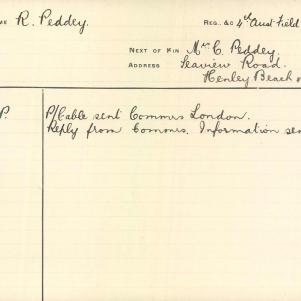 ME R. Peddey. REG. &C 4th Aust Field
NEXT OF KIN Mrs C. Peddey.
ADDRESS Seaview Road.
Henley Beach
P. P/Cable sent Commrs London.
Reply from Commrs. Information sen